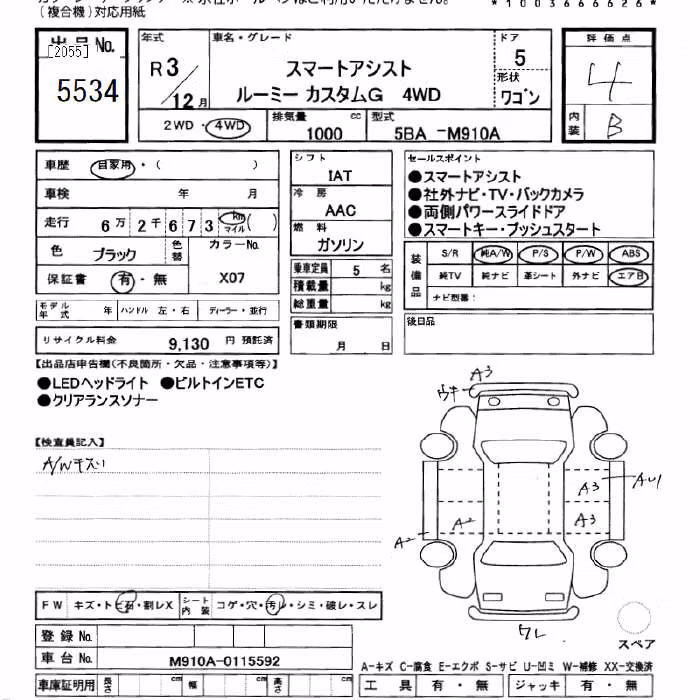 (複合機)対応用紙
*1003666626*
出品No.
[2055]
5534
年式
R3/12月
車名・グレード
スマートアシスト
ルーミー カスタムG 4WD
ドア
5
形状
ワゴン
2WD・4WD
排気量
1000 cc
型式
5BA -M910A
評価点
4
内装
B
車歴 自家用・( )
車検 年 月
走行 6万2千673 km マイル ( )
色 ブラック 色替
カラーNo.
X07
保証書 有・無
モデル年式 年 ハンドル 左・右 ディーラー・並行
リサイクル料金 9,130 円 預託済
シフト
IAT
冷房
AAC
燃料
ガソリン
乗車定員 5 名
積載量 kg
総重量 kg
書類期限
月 日
セールスポイント
●スマートアシスト
●社外ナビ・TV・バックカメラ
●両側パワースライドドア
●スマートキー・プッシュスタート
装備品
S/R 純A/W P/S P/W ABS
純TV 純ナビ 革シート 外ナビ エアB
ナビ型番:
後日品
【出品店申告欄(不良箇所・欠品・注意事項等)】
●LEDヘッドライト ●ビルトインETC
●クリアランスソナー
【検査員記入】
A/Wキズ
A3
A3
AU1
A2
A3
A2
ワレ
スペア
FW キズ・トビ石・割レX
シート内装 コゲ・穴・汚レ・シミ・破レ・スレ
登録No.
車台No. M910A-0115592
車庫証明用 長さ cm 幅 cm 高さ cm
A-キズ C-腐食 E-エクボ S-サビ U-凹ミ W-補修 XX-交換済
工具 有・無 ジャッキ 有・無